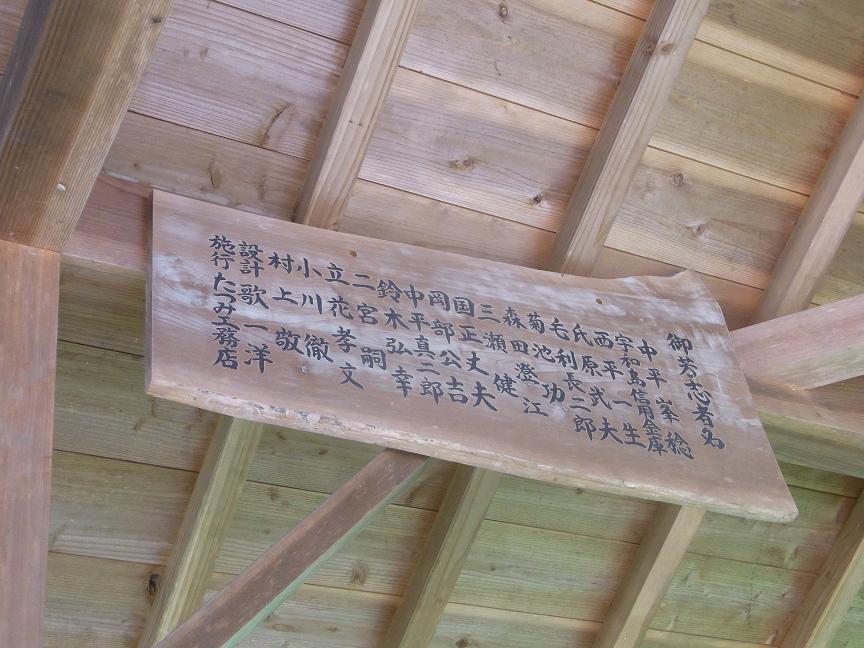 御芳志者名
中平 峯稔
宇和島信用金庫
西平一生
氏原武夫
毛利長二郎
菊池 功
森田澄江
三瀬 健
国正丈夫
岡部公吉
中平真二郎
鈴木弘幸
二宮 嗣
立花孝文
小川 徹
村上 敬
設計 歌一洋
施行 たつみ工務店